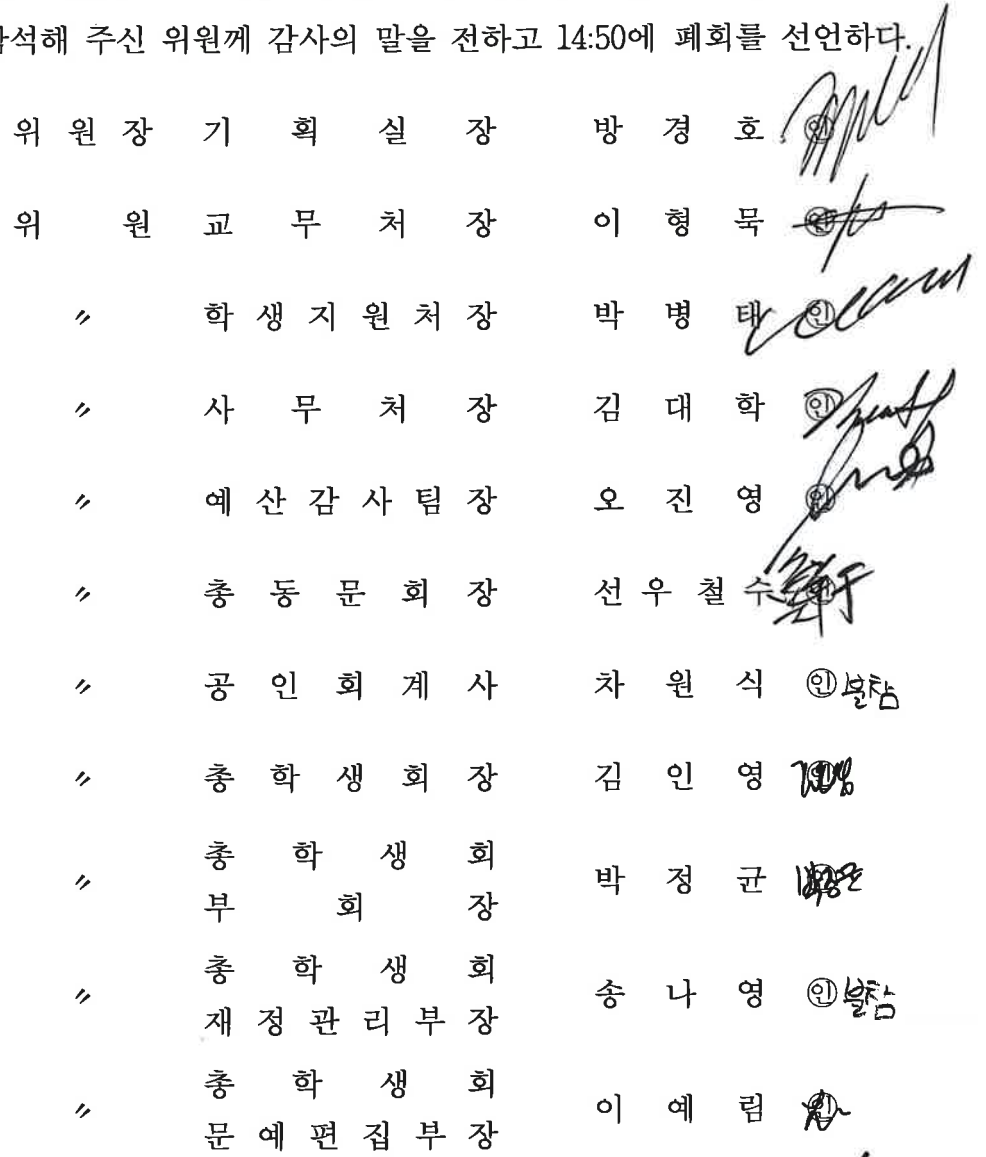 석해 주신 위원께 감사의 말을 전하고 14:50에 폐회를 선언하다.
위 원 장 기 획 실 장 방 경 호 ㊞
위 원 교 무 처 장 이 형 묵 ㊞
〃 학 생 지 원 처 장 박 병 태 ㊞
〃 사 무 처 장 김 대 학 ㊞
〃 예 산 감 사 팀 장 오 진 영 ㊞
〃 총 동 문 회 장 선 우 철 수 ㊞
〃 공 인 회 계 사 차 원 식 ㊞ 불참
〃 총 학 생 회 장 김 인 영 ㊞ 김인영
〃 총 학 생 회
부 회 장 박 정 균 ㊞ 박정균
〃 총 학 생 회
재 정 관 리 부 장 송 나 영 ㊞ 불참
〃 총 학 생 회
문 예 편 집 부 장 이 예 림 ㊞